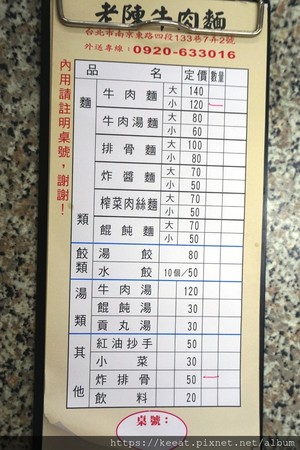 老陳牛肉麵
台北市南京東路四段133巷7弄2號
外送專線：0920-633016
內用請註明桌號，謝謝！
品名 定價 數量
麵類
牛肉麵 大 140
小 120
牛肉湯麵 大 80
小 60
排骨麵 大 100
小 80
炸醬麵 大 70
小 50
榨菜肉絲麵 大 70
小 50
餛飩麵 大 70
小 50
餃類
湯餃 80
水餃 10個/50
湯類
牛肉湯 120
餛飩湯 30
貢丸湯 30
其他
紅油抄手 50
小菜 30
炸排骨 50
飲料 20
桌號：
https://keeat.pixnet.net/album